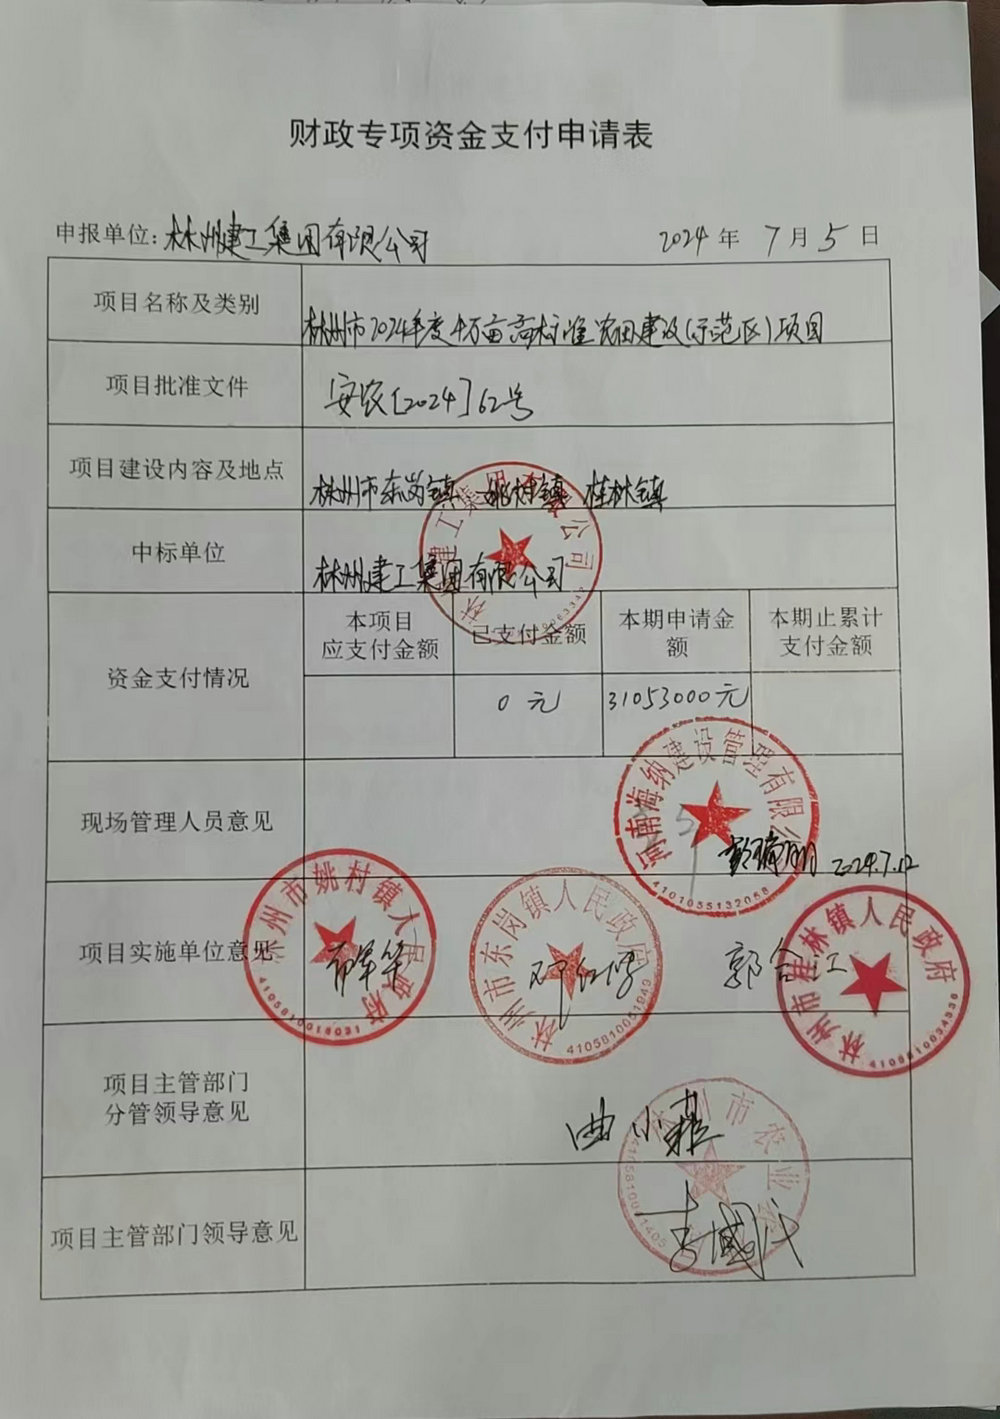 财政专项资金支付申请表
申报单位:林州建工集团有限公司 2024年7月5日
项目名称及类别
林州市2024年度4万亩高标准农田建设(示范区)项目
项目批准文件
安农[2024]62号
项目建设内容及地点
林州市东岗镇 姚村镇 桂林镇
中标单位
林州建工集团有限公司
资金支付情况
本项目
应支付金额
已支付金额
本期申请金
额
本期止累计
支付金额
0元
31053000元
现场管理人员意见
河南海纳建设管理有限公
4101055132058
2024.7.12
项目实施单位意见
林州市姚村镇人民政府
4105810018031
林州市东岗镇人民政府
4105810051949
郭合江
林州市桂林镇人民政府
4105810034336
项目主管部门
分管领导意见
曲小
林州市农业
项目主管部门领导意见